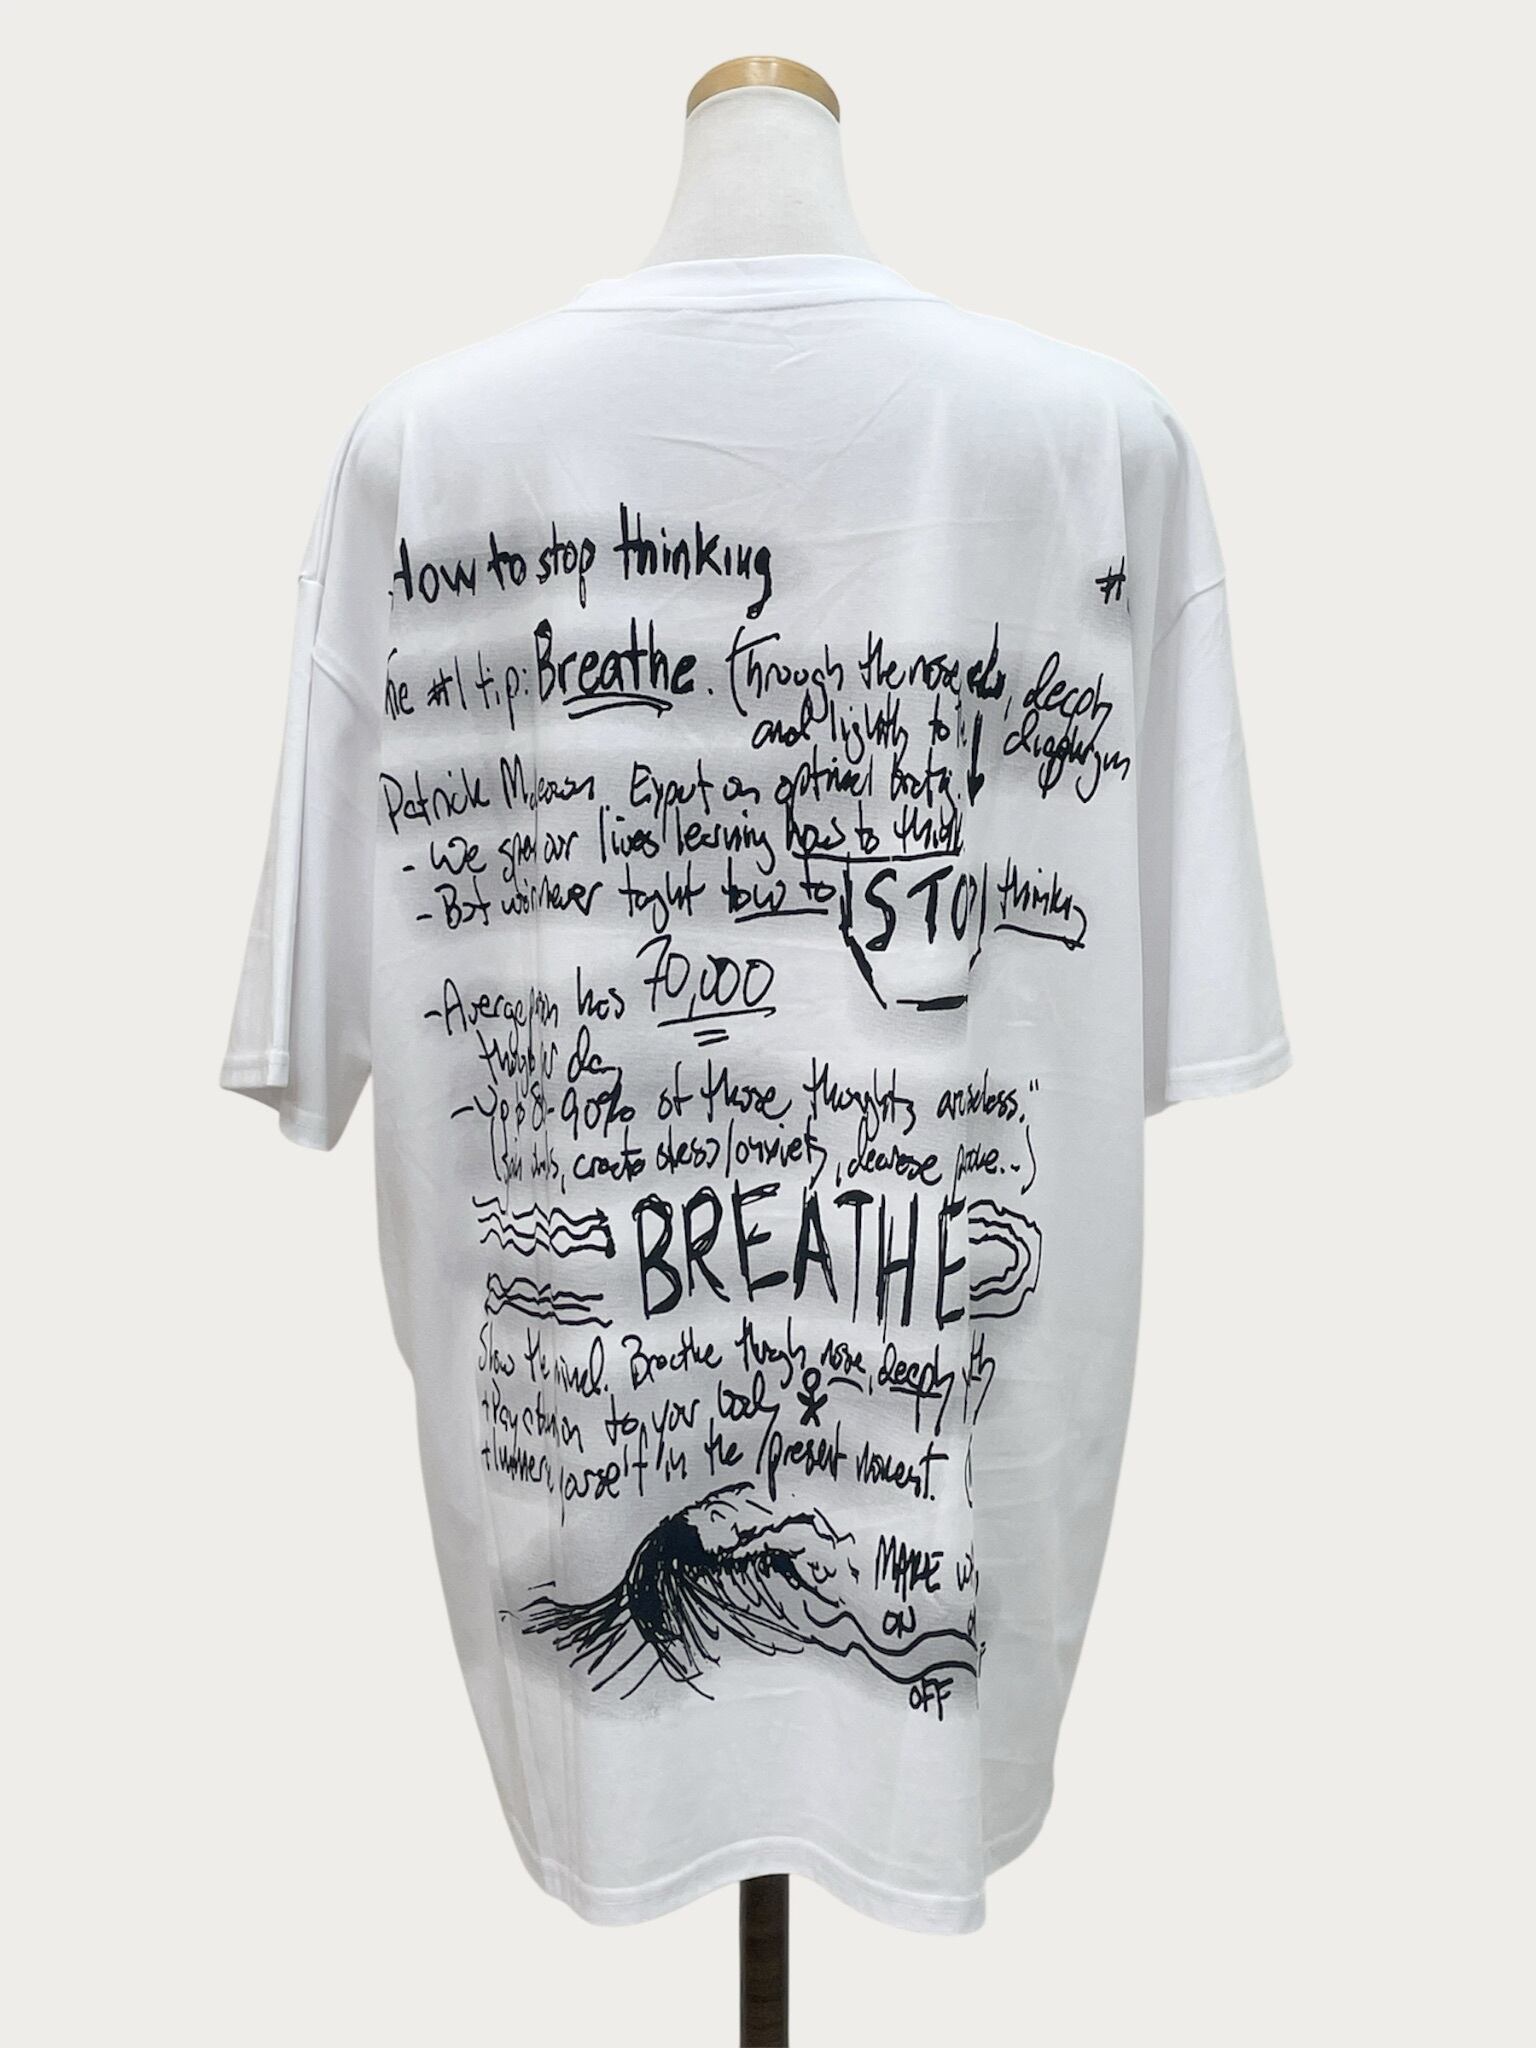 How to stop thinking
#
The #1 tip: Breathe. (Through the nose, deeply
and lightly to the diaphragm
Patrick McKeown. Expert on optimal
- We spend our lives learning how to think
- But we're never taght how to STOP thinking
- Average person has 70,000
thoughts per day
- Up to 80-90% of those thoughts are useless."
(create stress/anxiety, decrease
BREATHE
Slow the mind. Breathe through nose, deeply
+ Pay attention to your body
+ Immerse yourself in the present moment.
MAKE
ON
OFF